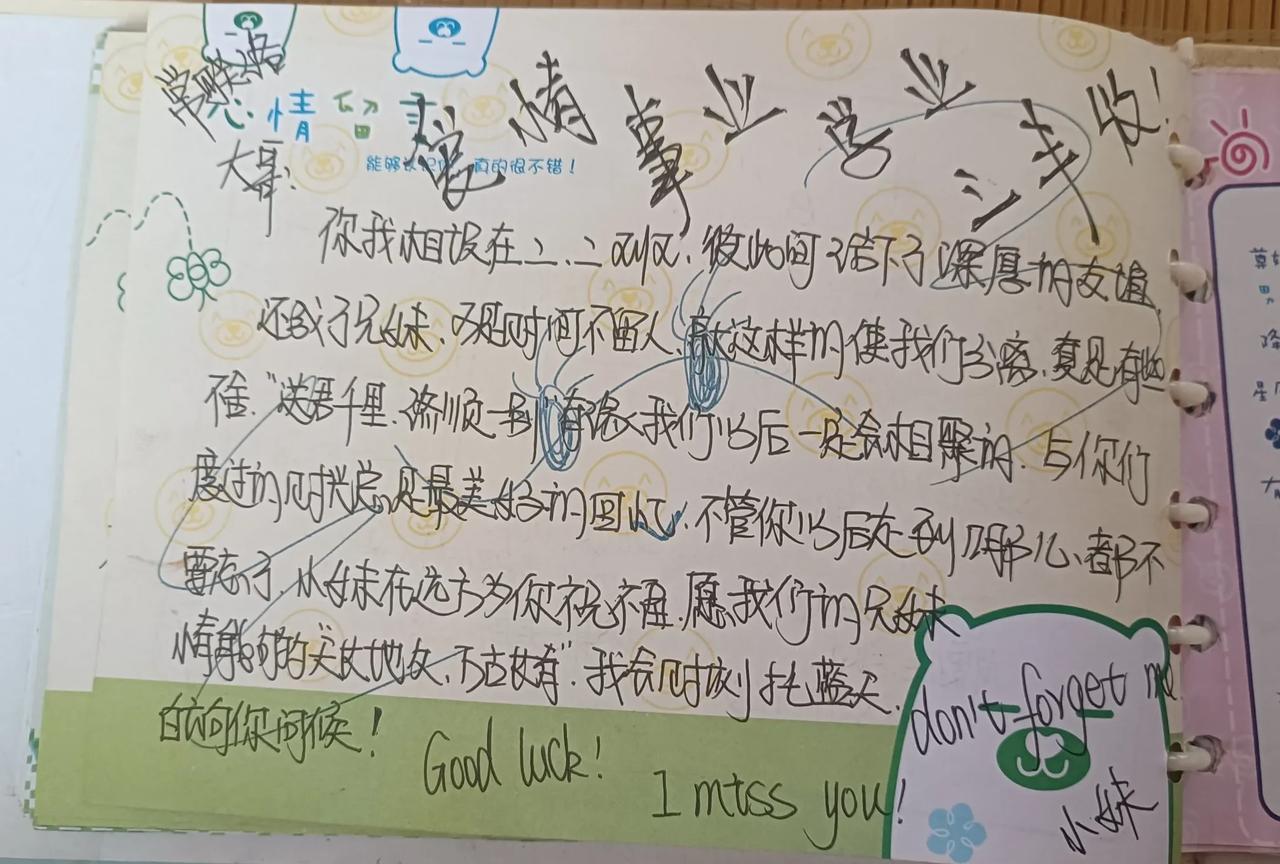 常联络
心情留言
爱情事业学业三丰收!
大哥:
能够认识你,真的很不错!
你我相识在二.二对区.彼此间结下了深厚的友谊
还成了兄妹.可是时间不留人.就这样的使我们分离.真是有些
不舍."送君千里.终须一别"有缘人我们以后一定会相聚的.与你们
度过的时光总是最美好的回忆.不管你以后走到哪儿、都不
要忘了.小妹在远方为你祝福.愿我们的兄妹
情能够的"天长地久.万古长青".我会时刻托蓝天
白云向你问候!
Good luck!
I miss you!
don't forget me
小妹